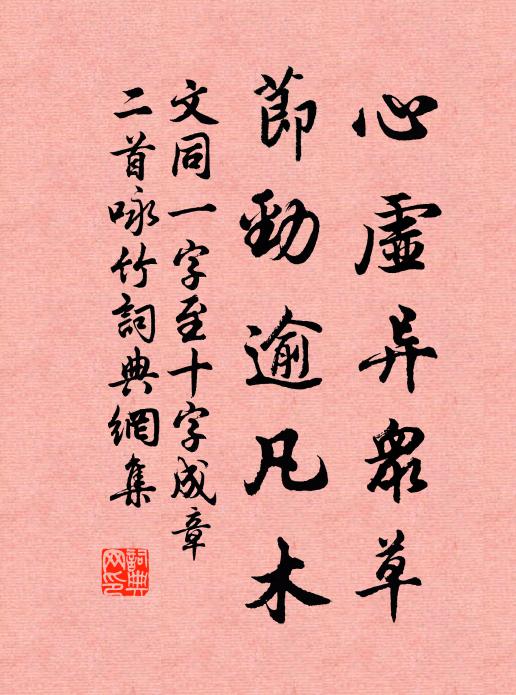 心虛异衆草
節勁逾凡木
文同一字至十字成章
二首咏竹詞典網集
詞典網印